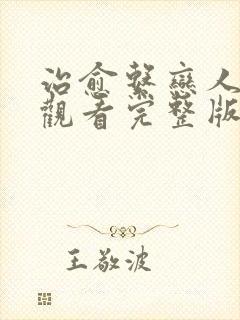 治愈繫戀人
觀看完整版
王敬波